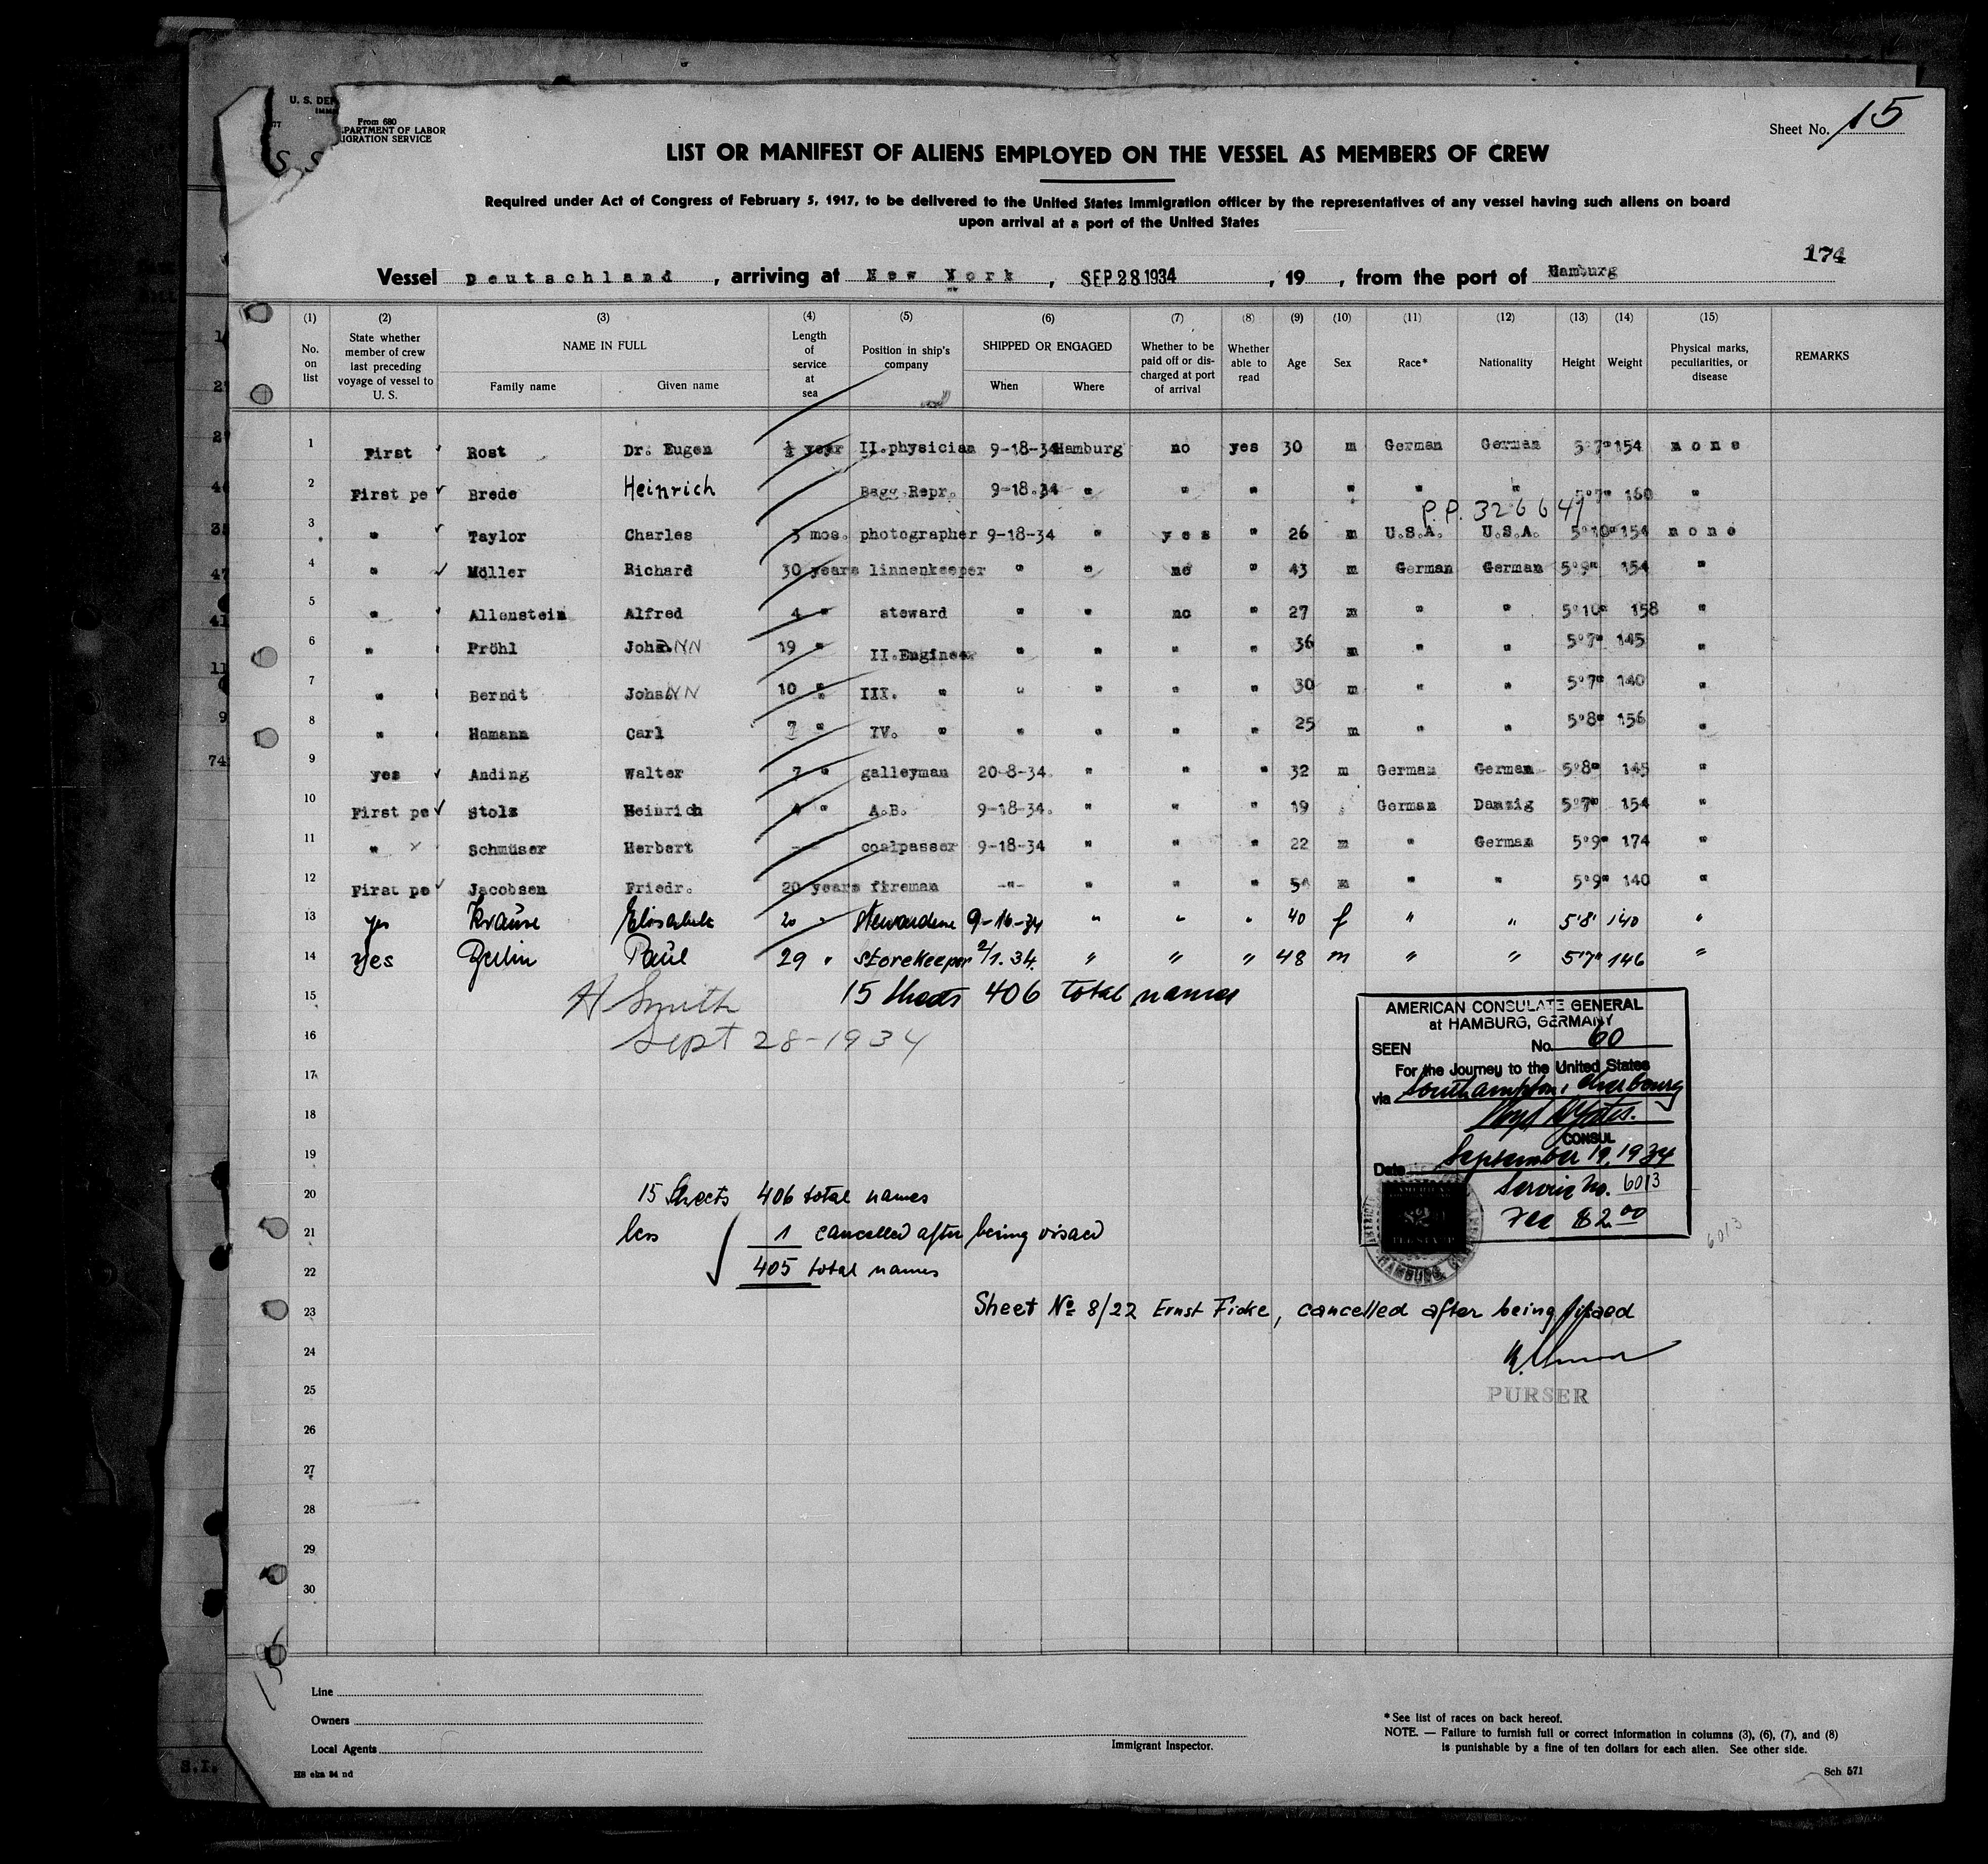 U. S. DEP
From 680
PARTMENT OF LABOR
IGRATION SERVICE
Sheet No. 15
LIST OR MANIFEST OF ALIENS EMPLOYED ON THE VESSEL AS MEMBERS OF CREW
Required under Act of Congress of February 5, 1917, to be delivered to the United States immigration officer by the representatives of any vessel having such aliens on board
upon arrival at a port of the United States
174
Vessel Deutschland , arriving at New York , SEP 28 1934 , 19 , from the port of Hamburg
(1) (2) (3) (4) (5) (6) (7) (8) (9) (10) (11) (12) (13) (14) (15)
No. on list
State whether member of crew last preceding voyage of vessel to U. S.
NAME IN FULL
Family name
Given name
Length of service at sea
Position in ship's company
SHIPPED OR ENGAGED
When
Where
Whether to be paid off or discharged at port of arrival
Whether able to read
Age
Sex
Race*
Nationality
Height
Weight
Physical marks, peculiarities, or disease
REMARKS
1 First Rost Dr. Eugen ½ year II.physician 9-18-34 Hamburg no yes 30 m German German 5'7" 154 none
2 First pe Brede Heinrich Bagg.Repr. 9-18.34 " " " " " " 5'7" 160 "
P.P. 326647
3 " Taylor Charles 3 mos. photographer 9-18-34 " yes " 26 m U.S.A. U.S.A. 5'10" 154 none
4 " Möller Richard 30 years linnenkeeper " " no " 43 m German German 5'9" 154 "
5 " Allenstein Alfred 4 " steward " " no " 27 m " " 5'10" 158 "
6 " Pröhl Joh. 19 " II.Engineer " " " " 36 m " " 5'7" 145 "
7 " Berndt Johs. 10 " III. " " " " " 30 m " " 5'7" 140 "
8 " Hamann Carl 7 " IV. " " " " " 25 m " " 5'8" 156 "
9 yes Anding Walter 7 " galleyman 20-8-34. " " " 32 m German German 5'8" 145 "
10 First pe Stolz Heinrich 4 " A.B. 9-18-34. " " " 19 German Danzig 5'7" 154 "
11 " Schmüser Herbert — coalpasser 9-18-34 " " " 22 m " German 5'9" 174 "
12 First pe Jacobsen Friedr. 20 years fireman -"- " " " 54 m " " 5'9" 140 "
13 yes Krause Elisabeth 20 " stewardess 9-16-34 " " " 40 f " " 5'8" 140 "
14 yes Paul 29 " storekeeper 2/1.34. " " " 48 m " " 5'7" 146 "
15 H Smith 15 sheets 406 total names
16 Sept 28-1934
17
18
19
20 15 Sheets 406 total names
21 less 1 cancelled after being visaed
22 405 total names
23 Sheet No 8/22 Ernst Ficke, cancelled after being visaed
24
25 PURSER
26
27
28
29
30
AMERICAN CONSULATE GENERAL
at HAMBURG, GERMANY
SEEN No. 60
For the Journey to the United States
via Southampton, Cherbourg
CONSUL
Date September 19, 1934
Service No. 6013
Fee $2.00
HAMBURG
6013
Line
Owners
Local Agents
Immigrant Inspector.
* See list of races on back hereof.
NOTE. — Failure to furnish full or correct information in columns (3), (6), (7), and (8)
is punishable by a fine of ten dollars for each alien. See other side.
Sch 571
S.I.